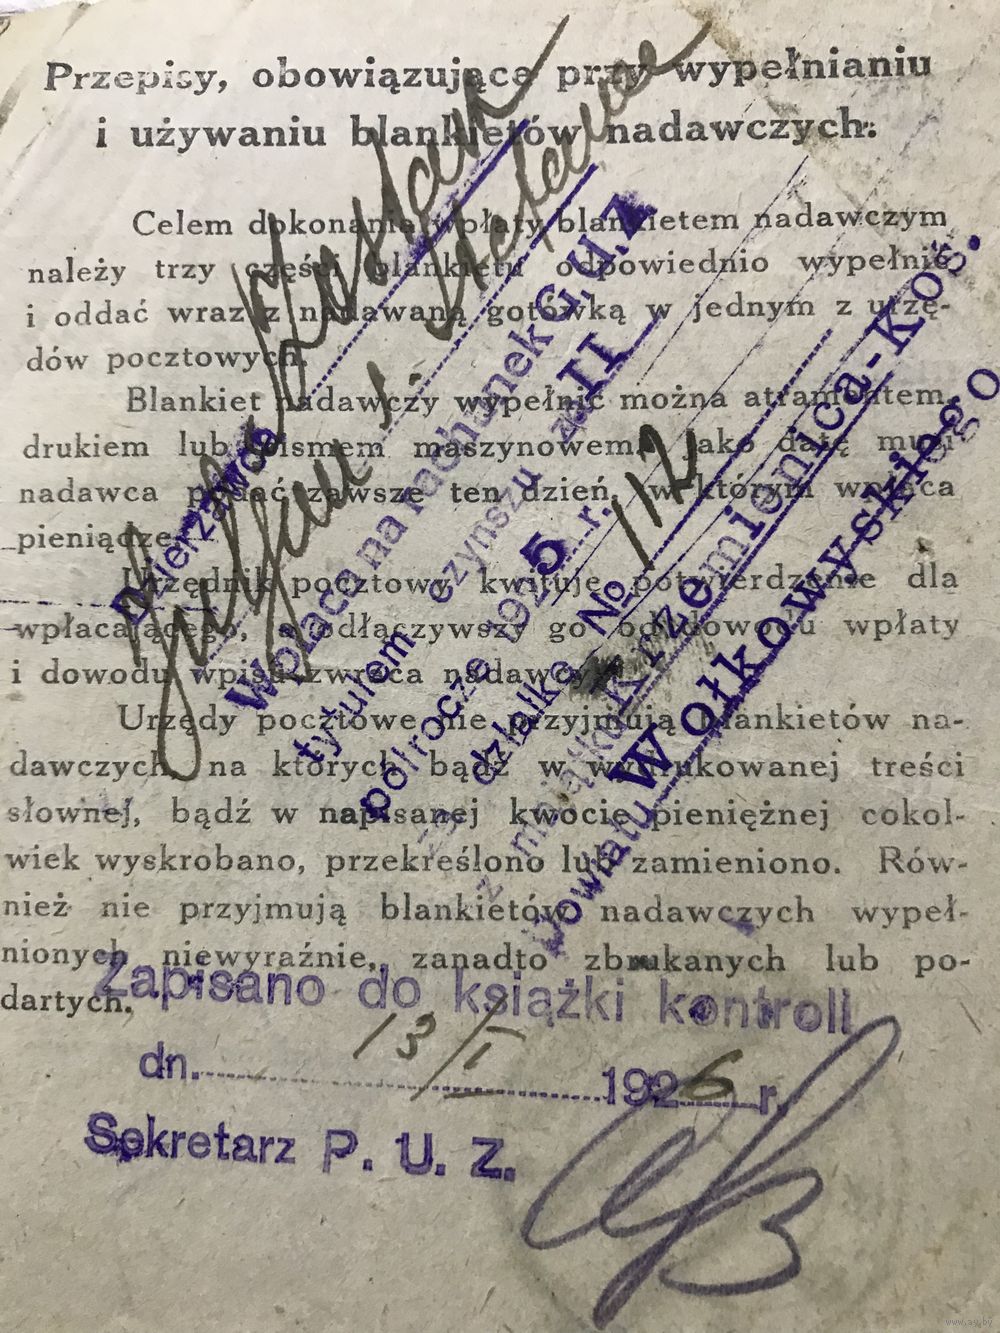 Przepisy, obowiązujące przy wypełnianiu
i używaniu blankietów nadawczych.
Celem dokonania wpłaty blankietem nadawczym
należy trzy części blankietu odpowiednio wypełnić
i oddać wraz z nadawaną gotówką w jednym z urzę-
dów pocztowych.
Blankiet nadawczy wypełnić można atramentem,
drukiem lub pismem maszynowem, jako datę musi
nadawca podać zawsze ten dzień, w którym wpłaca
pieniądze.
Urzędnik pocztowy kwituje potwierdzenie dla
wpłacającego, a odłączywszy go od dowodu wpłaty
i dowodu wpisu zwraca nadawcy.
Urzędy pocztowe nie przyjmują blankietów na-
dawczych, na których bądź w wydrukowanej treści
słownej, bądź w napisanej kwocie pieniężnej cokol-
wiek wyskrobano, przekreślono lub zamieniono. Rów-
nież nie przyjmują blankietów nadawczych wypeł-
nionych niewyraźnie, zanadto zbrukanych lub po-
dartych.
Dzierżawca
Wpłaca na rachunek G.U.Z
tytułem czynszu za II
półrocze 1925 r.
za działkę № 112
z majątku Krzemienica-Koś.
Powiatu Wołkowyskiego
Zapisano do książki kontroll
dn. 13/I 1926 r.
Sekretarz P. U. Z.
www.ay.by